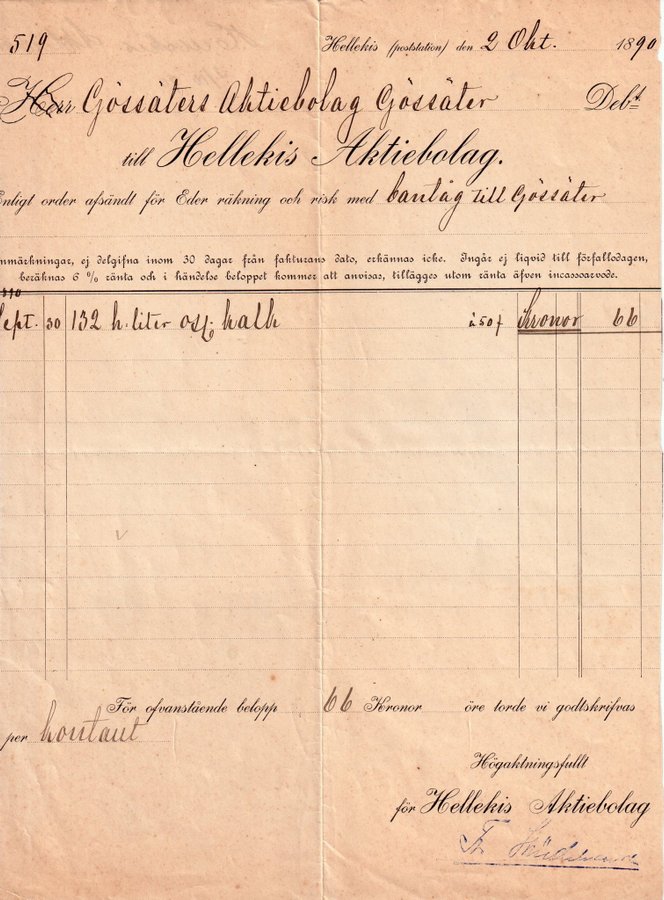 519 Hellekis (poststation) den 2 Okt. 1890
Herr Gössäters Aktiebolag Gössäter Debt.
till Hellekis Aktiebolag.
Enligt order afsändt för Eder räkning och risk med bantåg till Gössäter
nmärkningar, ej delgifna inom 30 dagar från fakturans dato, erkännas icke. Ingår ej liqvid till förfallodagen,
beräknas 6 % ränta och i händelse beloppet kommer att anvisas, tillägges utom ränta äfven incassoarvode.
Sept. 30 132 h. liter osl. kalk à 50 f Kronor 66
För ofvanstående belopp 66 Kronor öre torde vi godtskrifvas
per kontant
Högaktningsfullt
för Hellekis Aktiebolag